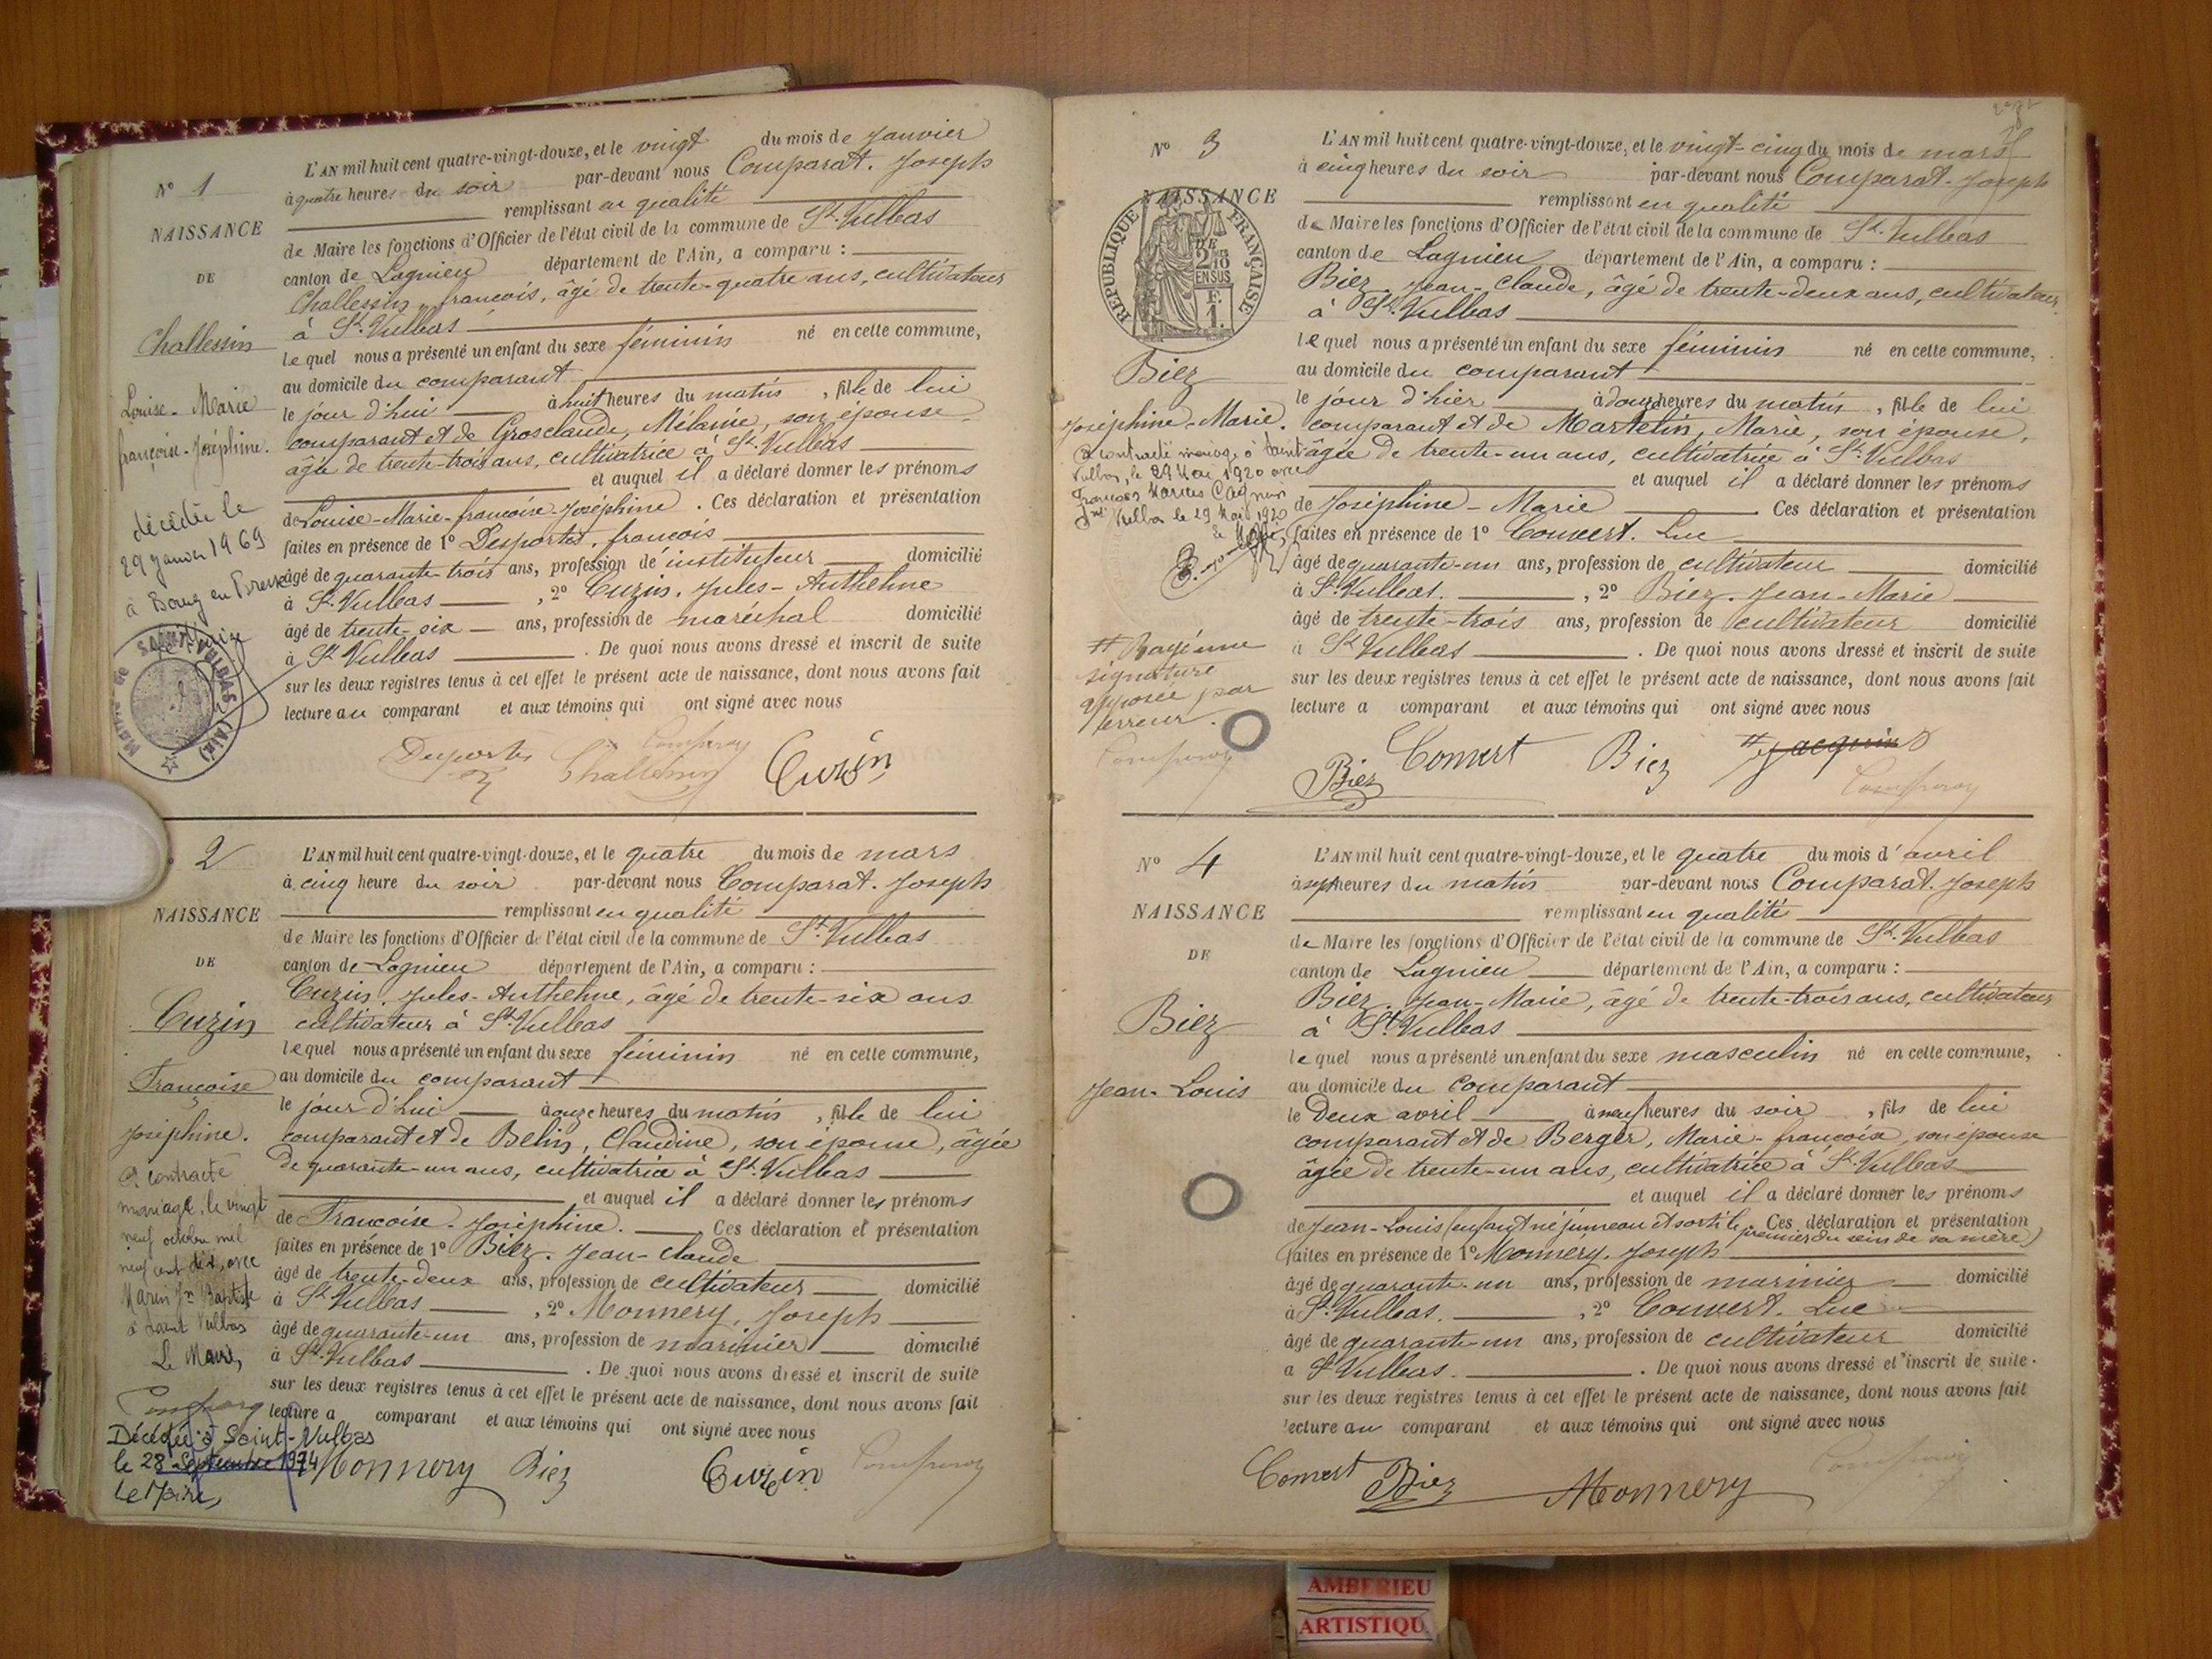 N° 1
NAISSANCE
DE
Challessin
Louise-Marie
françoise-Joséphine.
décédée le
29 janvier 1969
à Bourg en Bresse
L'AN mil huit cent quatre-vingt-douze, et le vingt du mois de Janvier
à quatre heures du soir par-devant nous Comparat. Joseph
remplissant en qualité
de Maire les fonctions d'Officier de l'état civil de la commune de St. Vulbas
canton de Lagnieu département de l'Ain, a comparu :
Challessin, françois, âgé de trente-quatre ans, cultivateur
à St. Vulbas
lequel nous a présenté un enfant du sexe féminin né en cette commune,
au domicile du comparant
le jour d'hui à huit heures du matin, fille de lui
comparant et de Grosclaude, Mélanie, son épouse
âgée de trente-trois ans, cultivatrice à St. Vulbas
et auquel il a déclaré donner les prénoms
de Louise-Marie-françoise-Joséphine. Ces déclaration et présentation
faites en présence de 1° Desportes, françois
âgé de quarante-trois ans, profession de instituteur domicilié
à St. Vulbas, 2° Cuzin. Jules-Anthelme
âgé de trente-six ans, profession de maréchal domicilié
à St. Vulbas. De quoi nous avons dressé et inscrit de suite
sur les deux registres tenus à cet effet le présent acte de naissance, dont nous avons fait
lecture au comparant et aux témoins qui ont signé avec nous
Desportes Challessin Comparat Cuzin
SAINT-VULBAS (Ain)
2
NAISSANCE
DE
Cuzin
Françoise
Joséphine.
A contracté
mariage, le vingt
neuf octobre mil
neuf cent dix, avec
Marin Jn Baptiste
à Saint Vulbas
Le Maire,
Comparat
Décédée à Saint-Vulbas
le 28 Septembre 1974
Le Maire,
L'AN mil huit cent quatre-vingt-douze, et le quatre du mois de mars
à cinq heure du soir par-devant nous Comparat. Joseph
remplissant en qualité
de Maire les fonctions d'Officier de l'état civil de la commune de St. Vulbas
canton de Lagnieu département de l'Ain, a comparu :
Cuzin. Jules-Anthelme, âgé de trente-six ans
cultivateur à St. Vulbas
lequel nous a présenté un enfant du sexe féminin né en cette commune,
au domicile du comparant
le jour d'hui à onze heures du matin, fille de lui
comparant et de Belin, Claudine, son épouse, âgée
de quarante-un ans, cultivatrice à St. Vulbas
et auquel il a déclaré donner les prénoms
de Françoise-Joséphine. Ces déclaration et présentation
faites en présence de 1° Biez. Jean-Claude
âgé de trente-deux ans, profession de cultivateur domicilié
à St. Vulbas, 2° Monnery, Joseph
âgé de quarante-un ans, profession de marinier domicilié
à St. Vulbas. De quoi nous avons dressé et inscrit de suite
sur les deux registres tenus à cet effet le présent acte de naissance, dont nous avons fait
lecture a comparant et aux témoins qui ont signé avec nous
Monnery Biez Cuzin Comparat
N° 3
NAISSANCE
REPUBLIQUE FRANÇAISE
Biez
Joséphine-Marie.
A contracté mariage à Saint
Vulbas, le 29 Mai 1920 avec
St Vulbas le 29 Mai 1920
Rayé une
signature
apposée par
erreur.
Comparat
L'AN mil huit cent quatre-vingt-douze, et le vingt-cinq du mois de mars
à cinq heures du soir par-devant nous Comparat. Joseph
remplissant en qualité
de Maire les fonctions d'Officier de l'état civil de la commune de St. Vulbas
canton de Lagnieu département de l'Ain, a comparu :
Biez. Jean-Claude, âgé de trente-deux ans, cultivateur
à St. Vulbas
lequel nous a présenté un enfant du sexe féminin né en cette commune,
au domicile du comparant
le jour d'hier à douze heures du matin, fille de lui
comparant et de Martelin, Marie, son épouse,
âgée de trente-un ans, cultivatrice à St. Vulbas
et auquel il a déclaré donner les prénoms
de Joséphine-Marie Ces déclaration et présentation
faites en présence de 1° Convert. Luc
âgé de quarante-un ans, profession de cultivateur domicilié
à St. Vulbas., 2° Biez. Jean-Marie
âgé de trente-trois ans, profession de cultivateur domicilié
à St. Vulbas. De quoi nous avons dressé et inscrit de suite
sur les deux registres tenus à cet effet le présent acte de naissance, dont nous avons fait
lecture a comparant et aux témoins qui ont signé avec nous
Biez Convert Biez Jacquin Comparat
N° 4
NAISSANCE
DE
Biez
Jean-Louis
L'AN mil huit cent quatre-vingt-douze, et le quatre du mois d'avril
à sept heures du matin par-devant nous Comparat. Joseph
remplissant en qualité
de Maire les fonctions d'Officier de l'état civil de la commune de St. Vulbas
canton de Lagnieu département de l'Ain, a comparu :
Biez. Jean-Marie, âgé de trente-trois ans, cultivateur
à St. Vulbas
lequel nous a présenté un enfant du sexe masculin né en cette commune,
au domicile du comparant
le Deux avril à neuf heures du soir, fils de lui
comparant et de Berger, Marie-françoise, son épouse
âgée de trente-un ans, cultivatrice à St. Vulbas
et auquel il a déclaré donner les prénoms
de Jean-Louis (enfant né jumeau et sorti le premier du sein de sa mère) Ces déclaration et présentation
faites en présence de 1° Monnery. Joseph
âgé de quarante-un ans, profession de marinier domicilié
à St. Vulbas., 2° Convert. Luc
âgé de quarante-un ans, profession de cultivateur domicilié
a St. Vulbas. De quoi nous avons dressé et inscrit de suite.
sur les deux registres tenus à cet effet le présent acte de naissance, dont nous avons fait
lecture au comparant et aux témoins qui ont signé avec nous
Convert Biez Monnery Comparat
AMBERIEU
ARTISTIQU